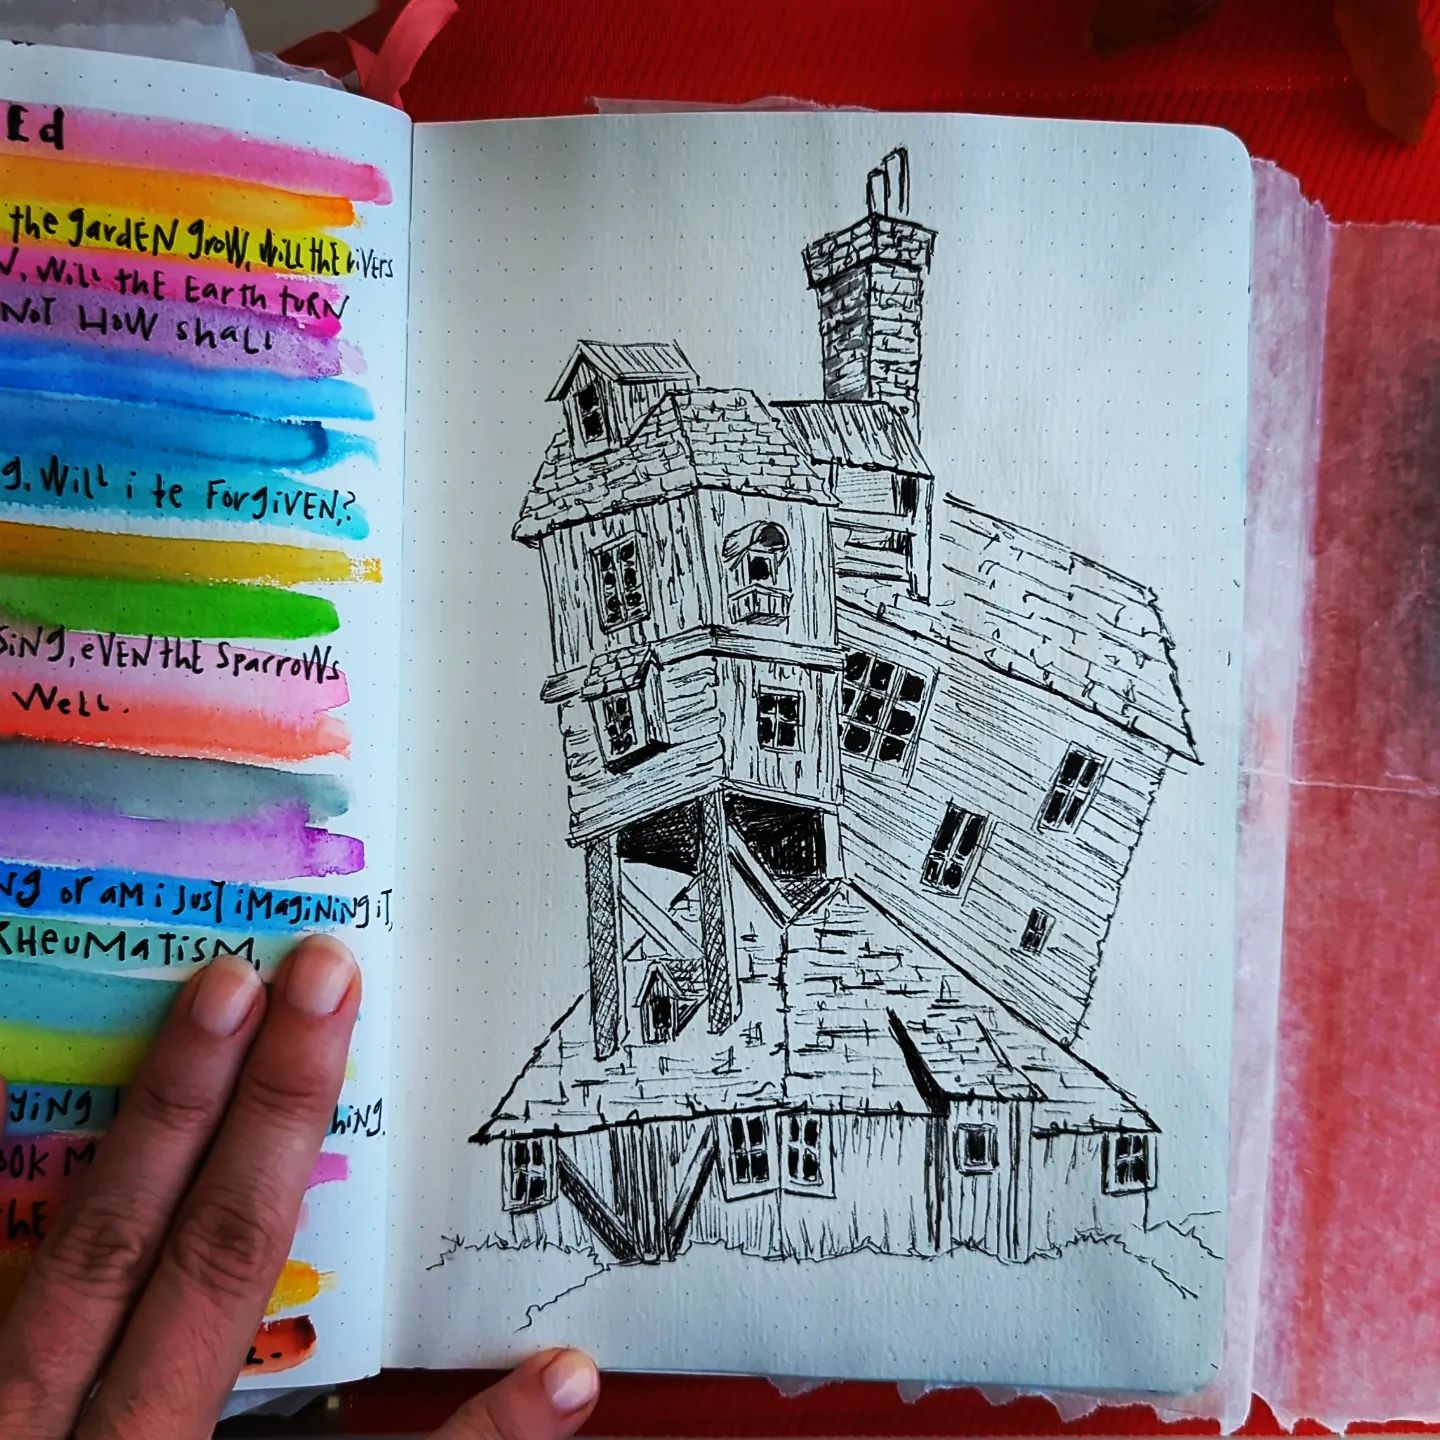 Ed
the gardEN groW, Will thE rivErs
, Will thE Earth tuRN
NoT HoW shall
g. Will i be ForgiVEN,?
SiNg, eVEN thE SparroWs
WeLL.
Ng or aM i JusT iMagiNiNg iT,
RHeuMaTisM,
yiNg hiNg.
ook M
thE